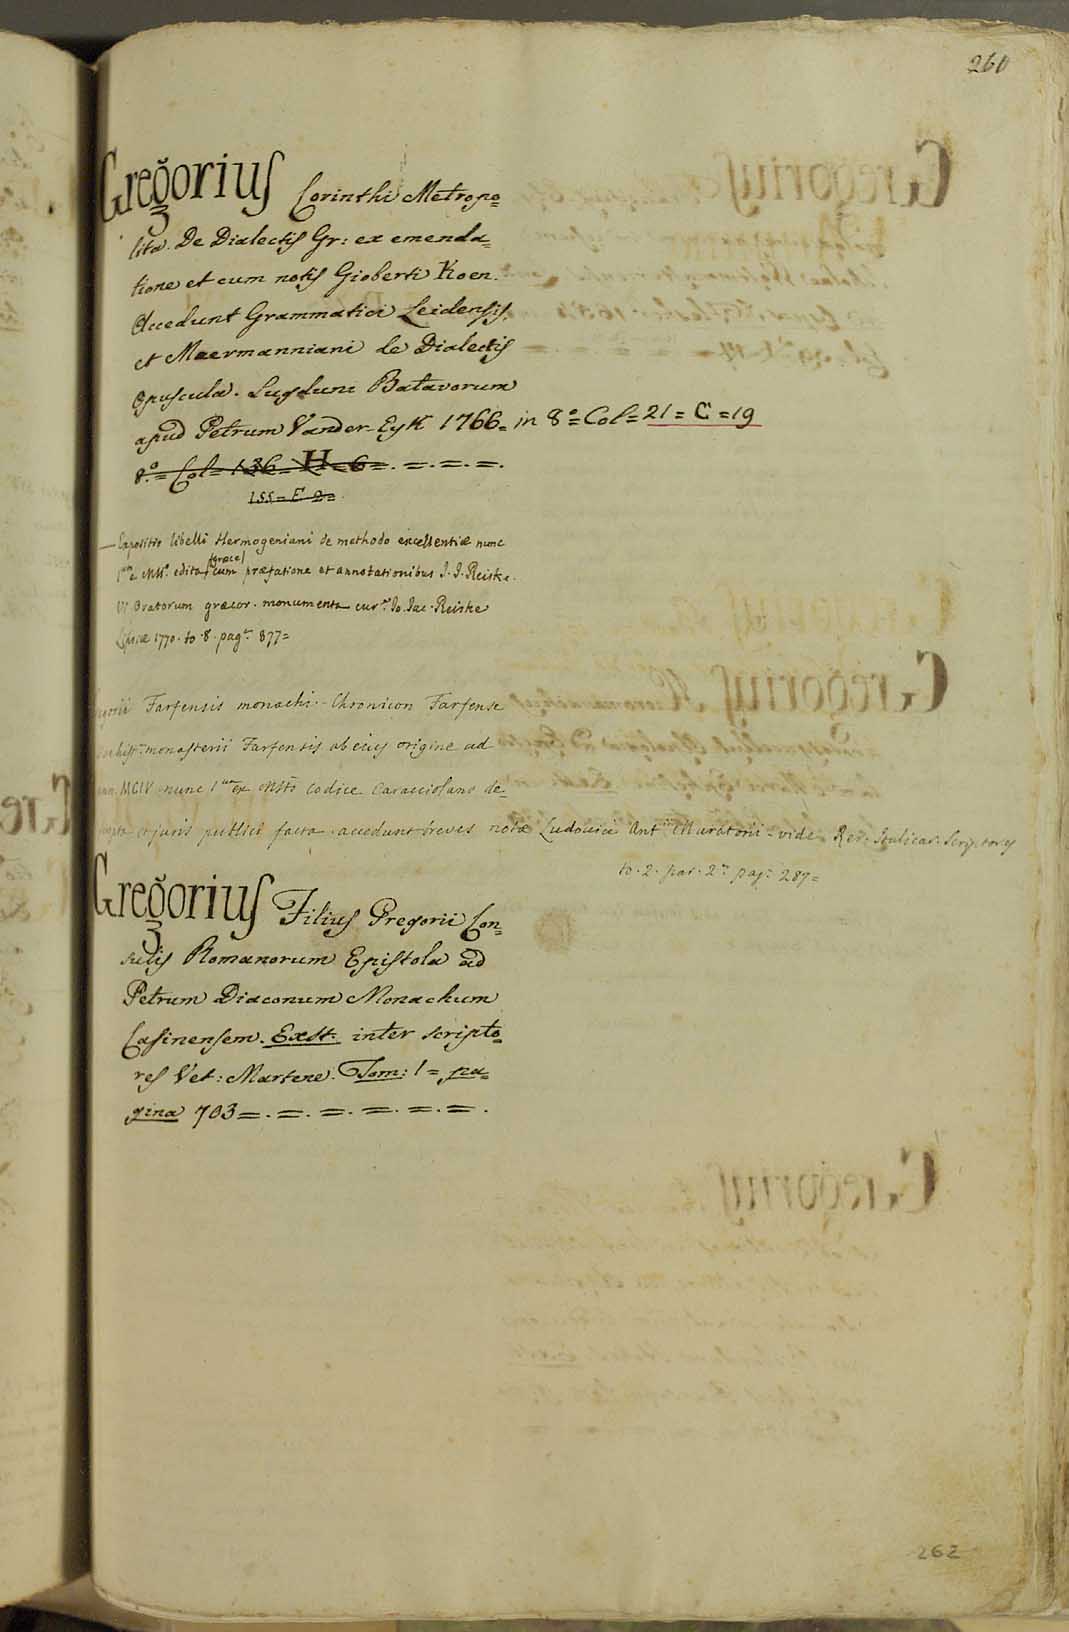 260
Gregorius Corinthi Metropo=
lita. De Dialectis Gr: ex emenda=
tione et cum notis Gisberti Koen.
Accedunt Grammatici Leidensis,
et Meermanniani de Dialectis
Opuscula. Lugduni Batavorum
apud Petrum Vander-Eyk 1766= in 8°= Col= 21= C =19
8°= Col= 136= H =6= . = . = . = .
155= E 2=
— Expositio libelli Hermogeniani de methodo excellentiæ nunc
1um e MSS. edita græce cum præfatione et annotationibus J. J. Reiske.
Vi Oratorum græcor. monumenta cur.te Jo. Jac. Reiske
Lipsiæ 1770. to. 8. pag.a 877=
Farfensis monachi. Chronicon Farfense
monasterii Farfensis ab eius origine ad
MCIV. nunc 1um ex MSto Codice Caracciolano de=
et juris publici facta. accedunt breves notæ Ludovici Ant.ii Muratorii. vide Rer. Italicar. Scriptores
to. 2. par. 2.a pag. 287=
Gregorius Filius Gregorii Con=
sulis Romanorum Epistola ad
Petrum Diaconum Monachum
Casinensem. Exst. inter scripto=
res Vet: Martene. Tom: 1= pa=
gina 703= . = . = . = . = . = .
262